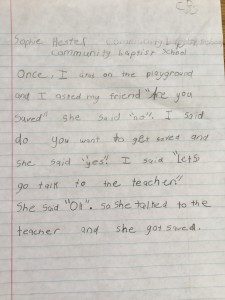 Sopie Hester
community baptist school
Once, I was on the playground
and I asked my friend "Are you
saved" she said "no". I said
do you want to get saved and
she said "yes". I said "Lets
go talk to the teacher"
She said "Ok". So she talked to the
teacher and she got saved.